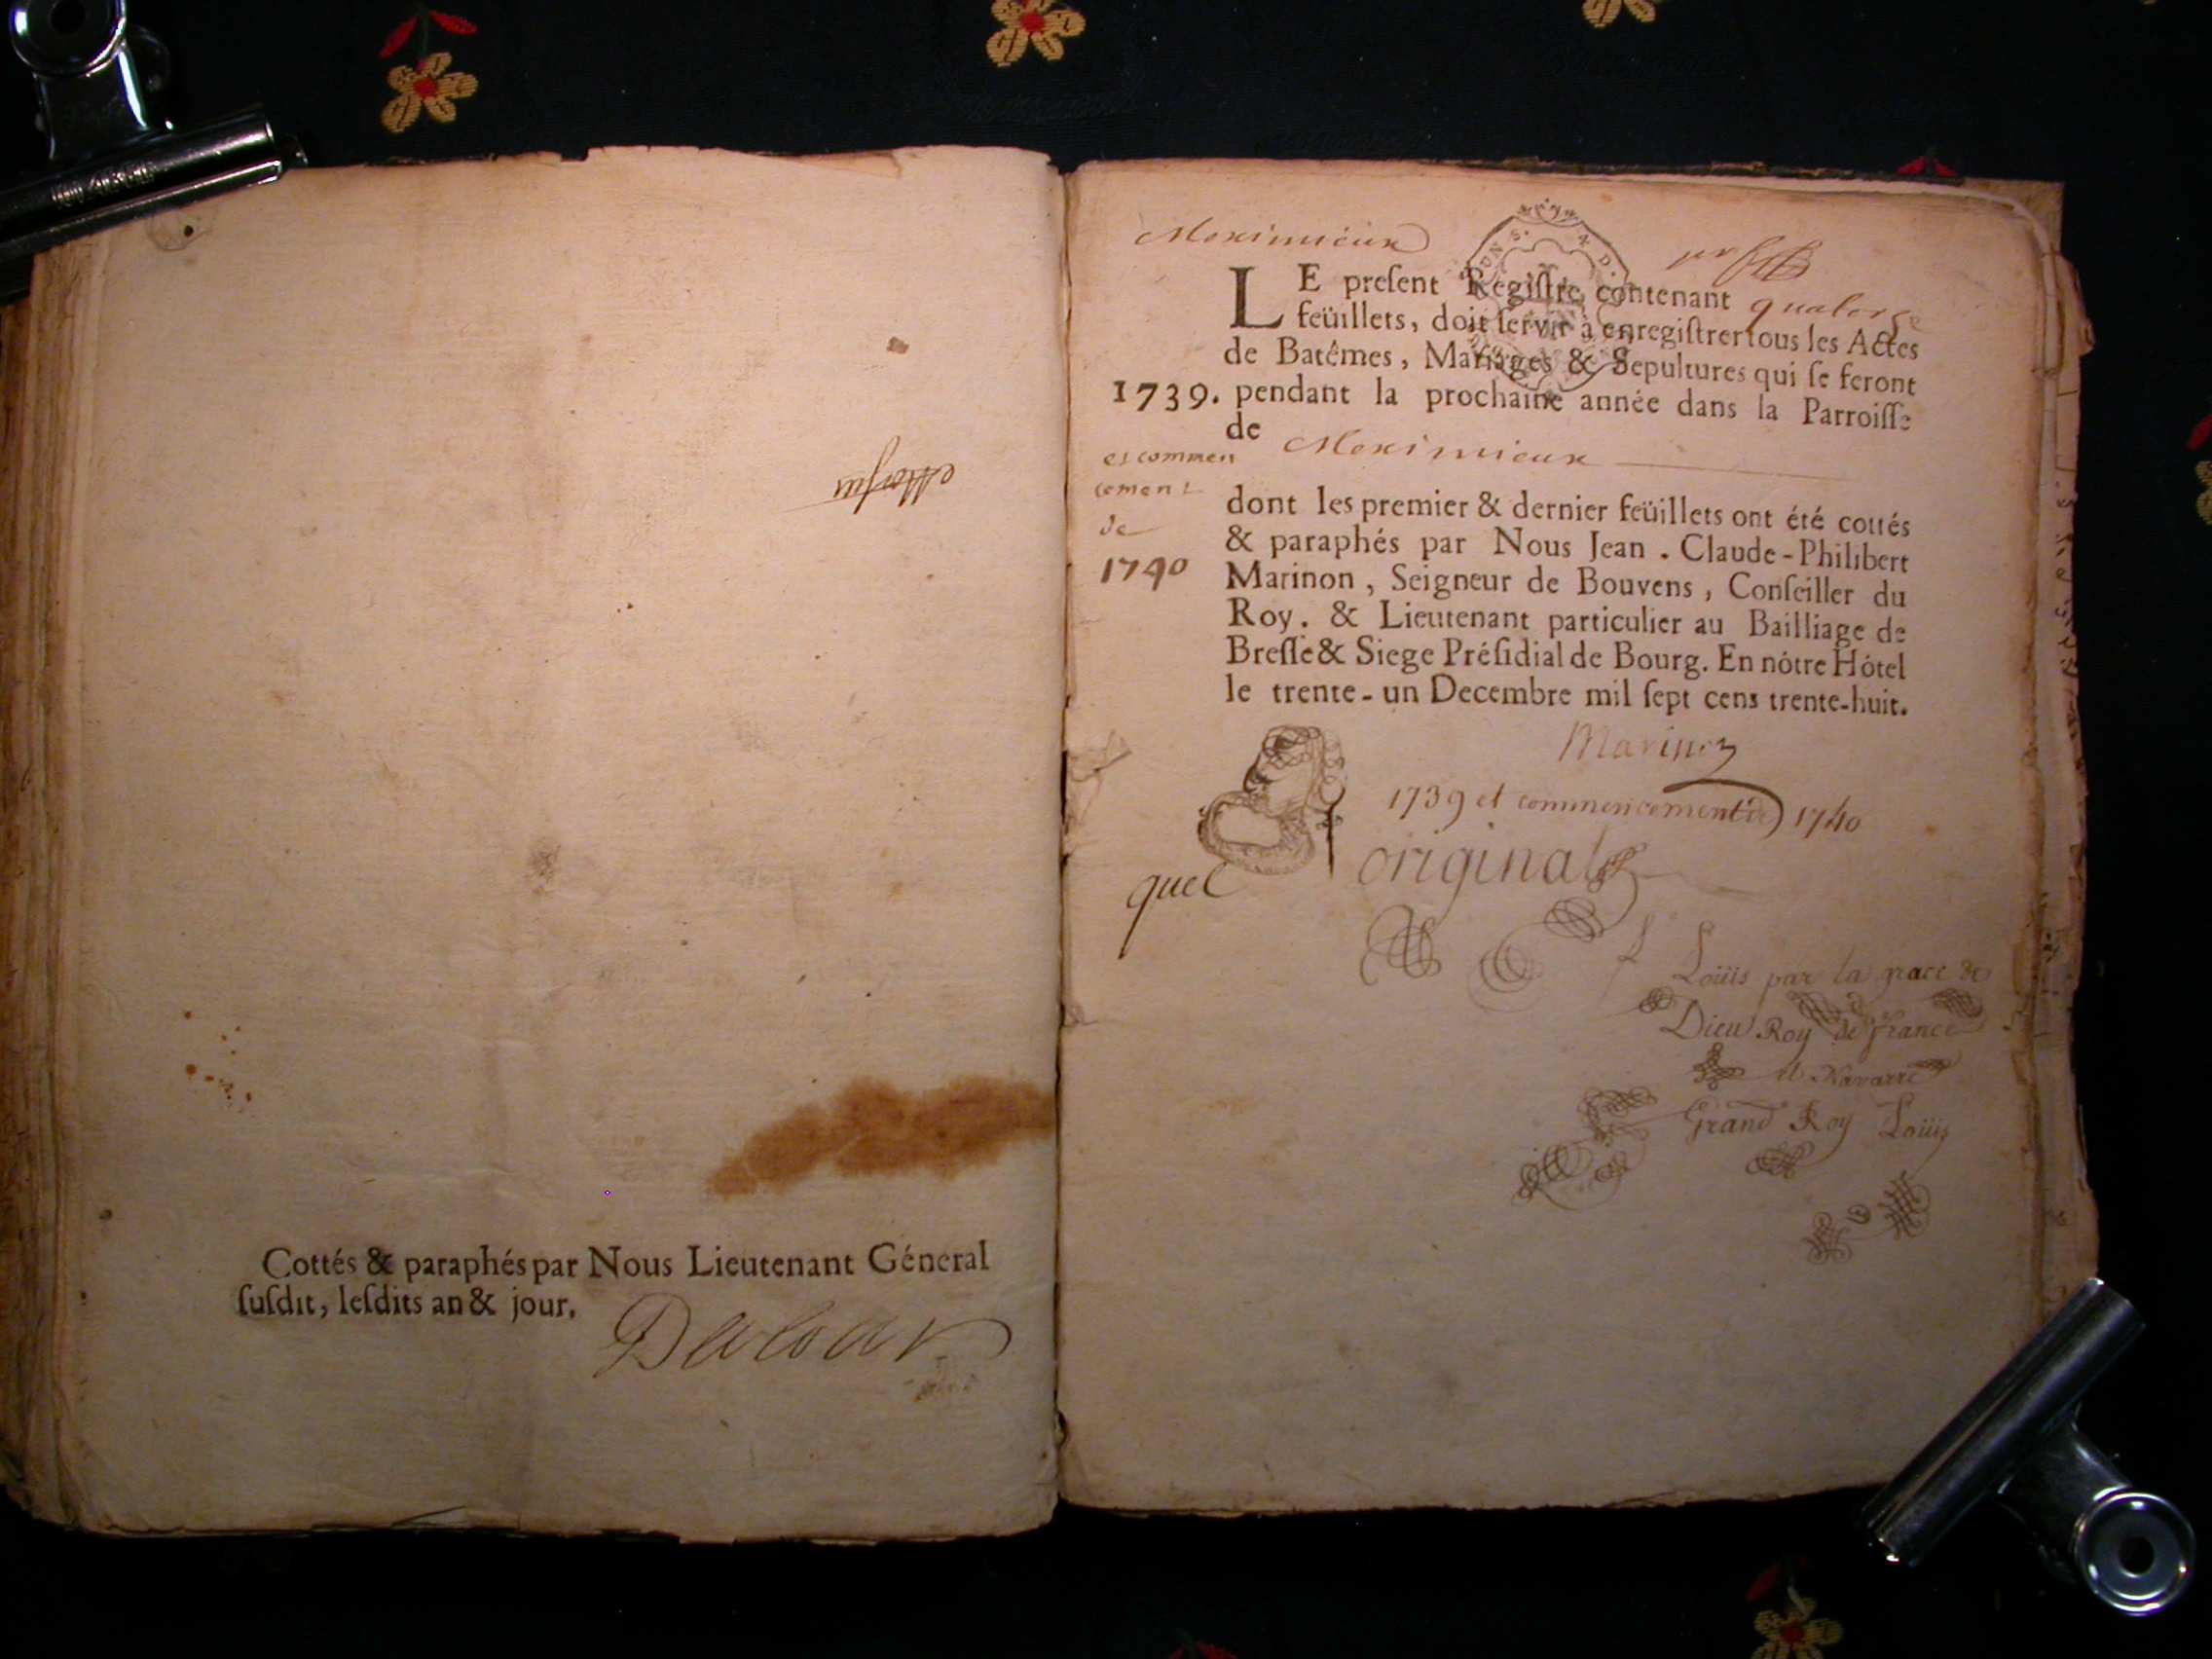 Cottés & paraphés par Nous Lieutenant Géneral
ſuſdit, leſdits an & jour.
Meximieux
LE preſent Regiſtre contenant quatorze
feüillets, doit ſervir à enregiſtrer tous les Actes
de Batêmes, Mariages & Sepultures qui ſe feront
1739. pendant la prochaine année dans la Parroiſſe
de Meximieux
et commen
cement
de
1740
dont les premier & dernier feüillets ont été cottés
& paraphés par Nous Jean . Claude-Philibert
Marinon, Seigneur de Bouvens, Conſeiller du
Roy. & Lieutenant particulier au Bailliage de
Breſſe & Siege Préſidial de Bourg. En nôtre Hôtel
le trente-un Decembre mil ſept cens trente-huit.
Marinon
1739 et commencement de 1740
original
quel
Loüis par la grace de
Dieu Roy de france
et Navarre
Grand Roy Loüis